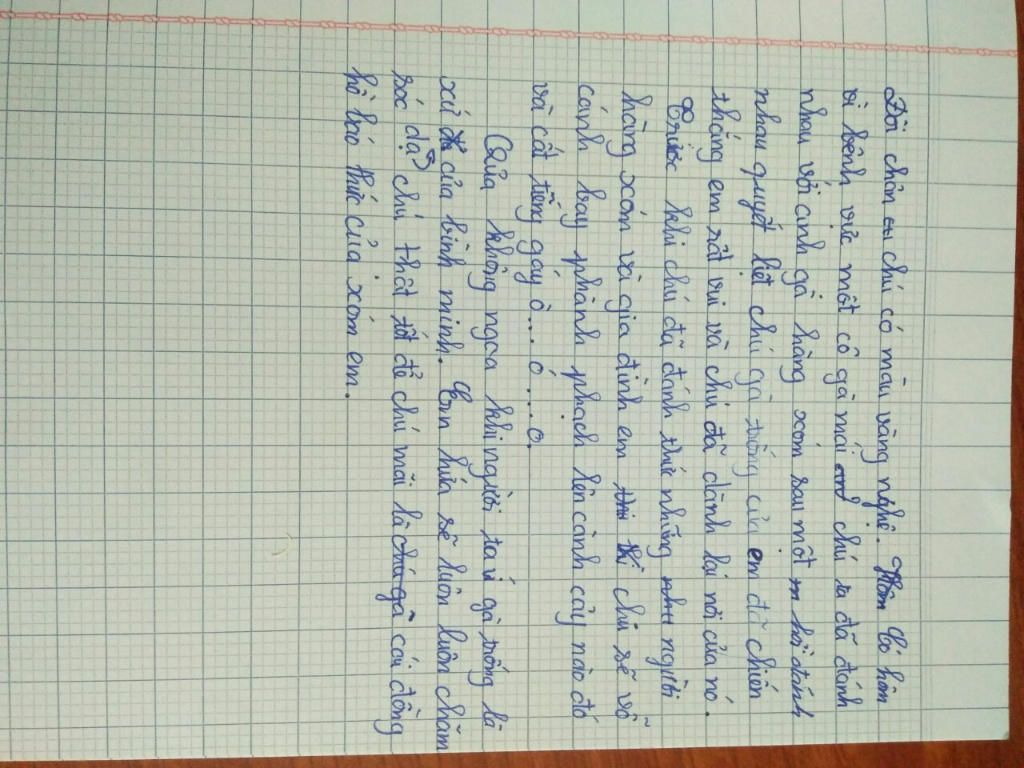 Đôi chân của chú có màu vàng nghệ. Hôm có hôm
vì bênh vực một cô gà mái mà chú ta đã đánh
nhau với anh gà hàng xóm sau một hồi đánh
nhau quyết liệt chú gà trống của em đã chiến
thắng em rất vui và chú đã dành lại nòi của nó.
Trước khi chú đã đánh thức những người
hàng xóm và gia đình em thì chú sẽ vỗ
cánh bay phành phạch lên cành cây nào đó
và cất tiếng gáy ò... ó... o.
Qủa không ngoa khi người ta ví gà trống là
xứ của bình minh. Em hứa sẽ luôn luôn chăm
sóc dạy chú thật tốt để chú mãi là cái đồng
hồ báo thức của xóm em.